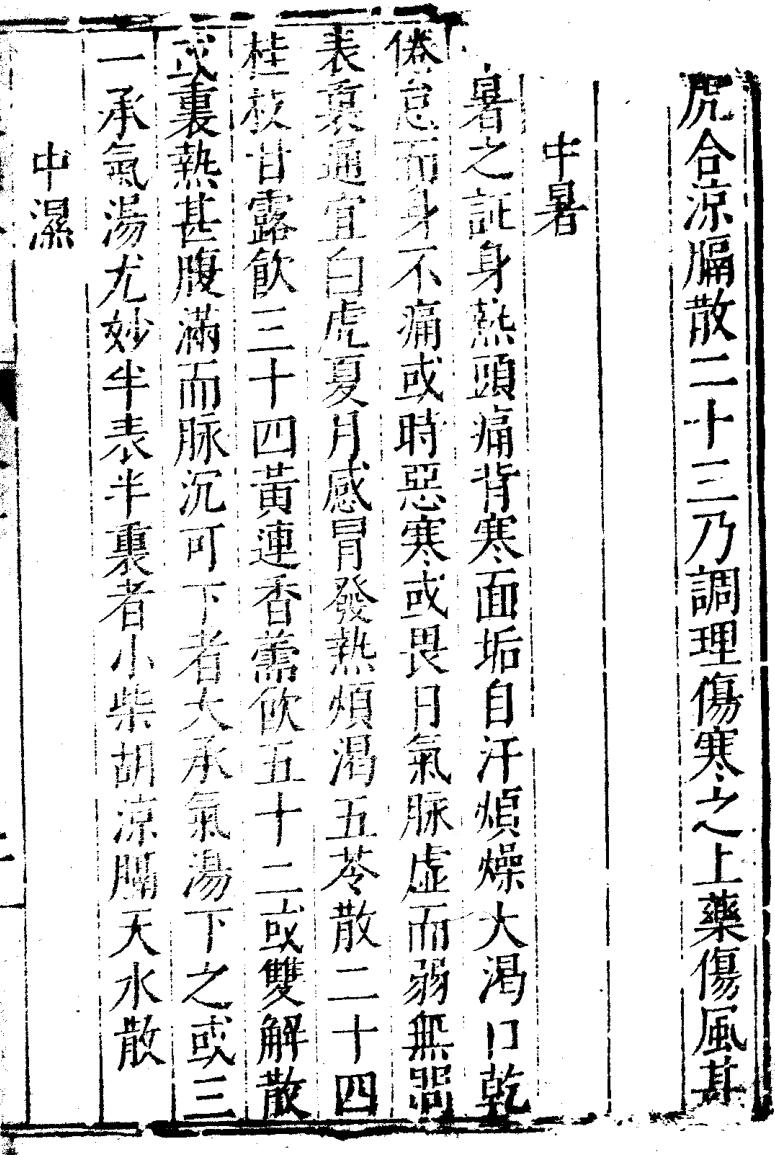 虎合涼膈散二十三乃調理傷寒之上藥傷風甚
中暑
暑之証身熱頭痛背寒面垢自汗煩燥大渴口乾
倦怠而身不痛或時惡寒或畏日氣脉虛而弱無問
表裏通宜白虎夏月感冒發熱煩渴五苓散二十四
桂枝甘露飲三十四黃連香薷飲五十二或雙解散
或裏熱甚腹滿而脉沉可下者大承氣湯下之或三
一承氣湯尤妙半表半裏者小柴胡涼膈天水散
中濕